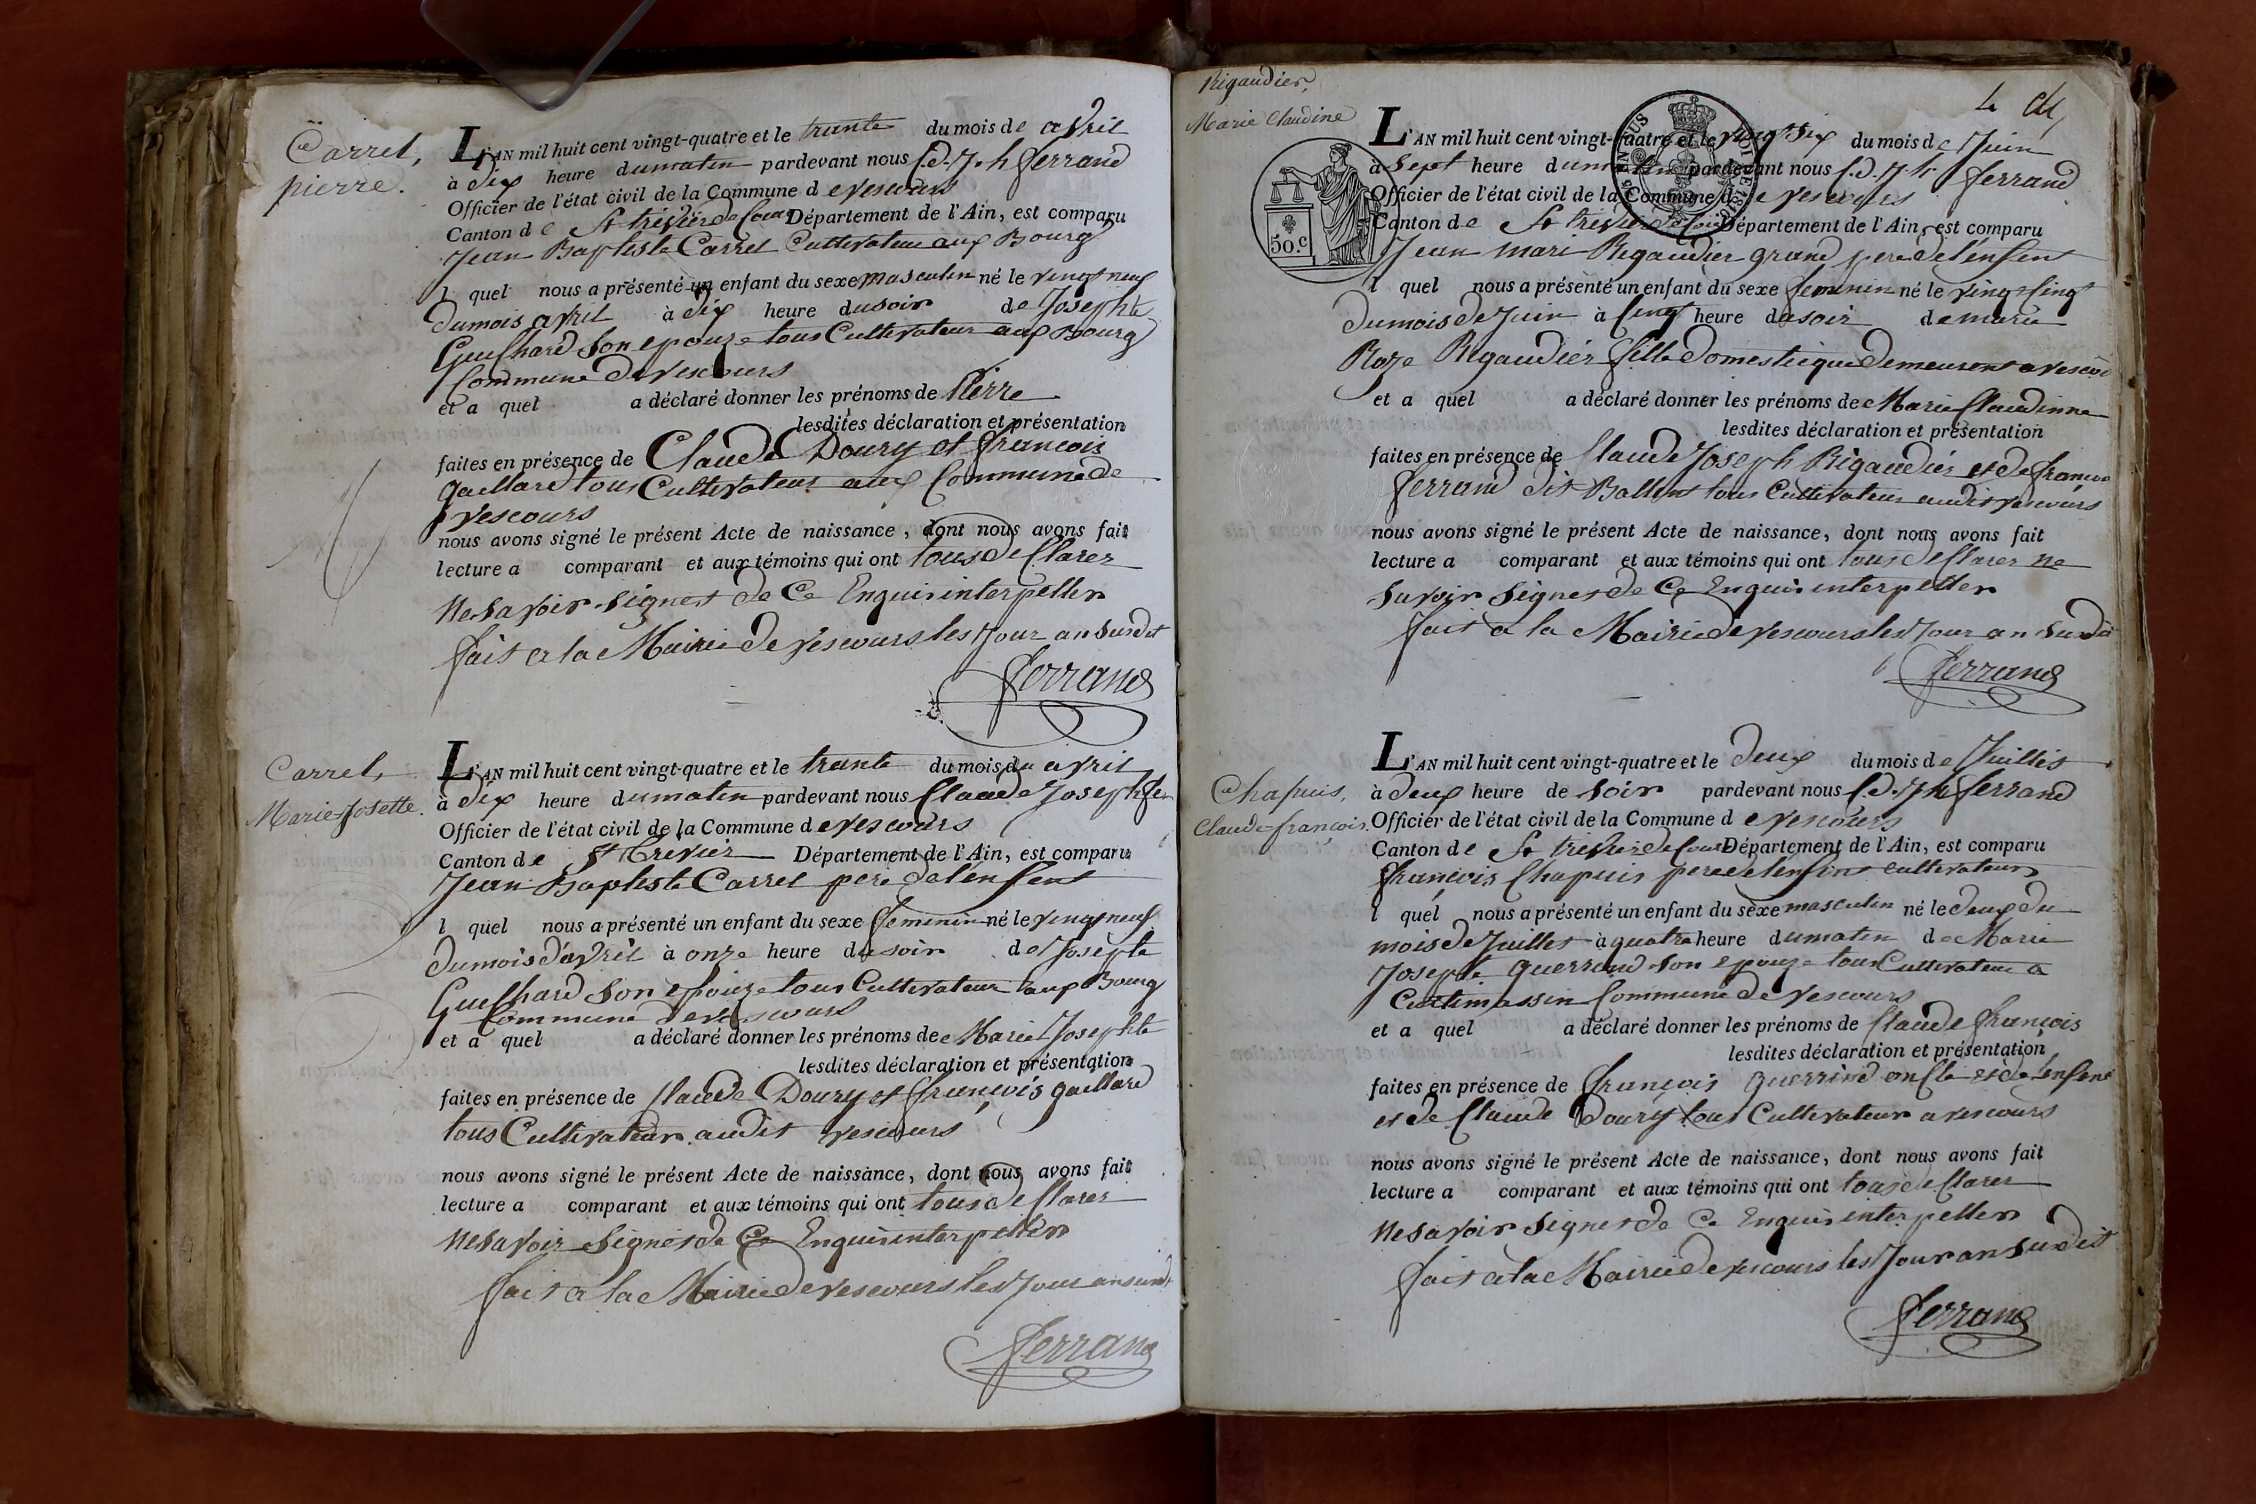 Carrel,
pierre.
L'AN mil huit cent vingt-quatre et le trante du mois de avril
à dix heure dumatin pardevant nous C.d. J.h ferrand
Officier de l'état civil de la Commune d evescours
Canton d e St trivier de Cour Département de l'Ain, est comparu
Jean Baptiste Carrel Cultivateur aux Bourg
l quel nous a présenté un enfant du sexe masculin né le vingt neuf
dumois avril à dix heure dusoir de Josephte
Guichard Son epouze tous Cultivateur aux Bourg
Commune de vescours
et a quel a déclaré donner les prénoms de Pierre
lesdites déclaration et présentation
faites en présence de Claude Doury et francois
gaillard tous Cultivateur aux Commune de
vescours
nous avons signé le présent Acte de naissance, dont nous avons fait
lecture a comparant et aux témoins qui ont tous de Clarer
Ne Savoir Signer de Ce Enquis interpeller
fait a la Mairie de vescours les Jour an Susdit
ferrand
Carrel,
Marie Josette.
L'AN mil huit cent vingt-quatre et le trante du mois du avril
à dix heure dumatin pardevant nous Claude Joseph fer
Officier de l'état civil de la Commune d evescours
Canton de St trevier Département de l'Ain, est comparu
Jean Baptiste Carrel pere de lenfent
l quel nous a présenté un enfant du sexe feminin né le vingt neuf
dumois d'avril à onze heure dusoir de Josephte
Guichard Son epouze tous Cultivateur aux Bourg
Commune de vescours
et a quel a déclaré donner les prénoms de Marie Josephte
lesdites déclaration et présentation
faites en présence de Claude Doury et françois gaillard
tous Cultivateur audit vescours
nous avons signé le présent Acte de naissance, dont nous avons fait
lecture a comparant et aux témoins qui ont tous de Clarer
Ne Savoir Signer de Ce Enquis interpeller
fait a la Mairie de vescours les Jour an susdit
ferrand
Rigaudier,
Marie Claudine
50.C
L'AN mil huit cent vingt-quatre et le vingt Six du mois de Juin
à Sept heure dumatin pardevant nous C.d. J.h ferrand
Officier de l'état civil de la Commune d e vescours
Canton de St trivier de Cour Département de l'Ain, est comparu
Jean mari Rigaudier grand pere de lenfent
l quel nous a présenté un enfant du sexe feminin né le vingt Cinq
dumois de Juin à Cinq heure dusoir de marie
Roze Rigaudier fille domestique demeurent a vescour
et a quel a déclaré donner les prénoms de Marie Claudinne
lesdites déclaration et présentation
faites en présence de Claude Joseph Rigaudier et de francois
ferrand dit Ballent tous Cultivateur audit vescours
nous avons signé le présent Acte de naissance, dont nous avons fait
lecture a comparant et aux témoins qui ont tous de Clarer ne
Savoir Signer de Ce Enquis interpeller
fait a la Mairie de vescours les Jour an Susdit
ferrand
Chapuis,
Claude-françois.
L'AN mil huit cent vingt-quatre et le deux du mois de Juillet
à deux heure de Soir pardevant nous C.d. J.h ferrand
Officier de l'état civil de la Commune d e vescours
Canton de St trivier de Cour Département de l'Ain, est comparu
françois Chapuis pere de lenfent cultivateur
l quel nous a présenté un enfant du sexe masculin né le deux du
mois de Juillet à quatre heure dumatin de Marie
Josephte guerrind Son epouze tous Cultivateur a
Curtimassin Commune de vescours
et a quel a déclaré donner les prénoms de Claude françois
lesdites déclaration et présentation
faites en présence de françois guerrind onCle et de lenfent
et de Claude Doury tous Cultivateur a vescours
nous avons signé le présent Acte de naissance, dont nous avons fait
lecture a comparant et aux témoins qui ont tous de Clarer
Ne Savoir Signer de Ce Enquis interpeller
fait a la Mairie de vescours les Jour an Susdit
ferrand